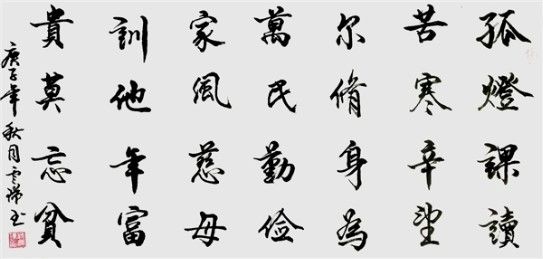 孤燈課讀
苦寒辛望
尔脩身為
萬民勤俭
家風慈母
訓他年富
貴莫忘貧
庚子年秋月